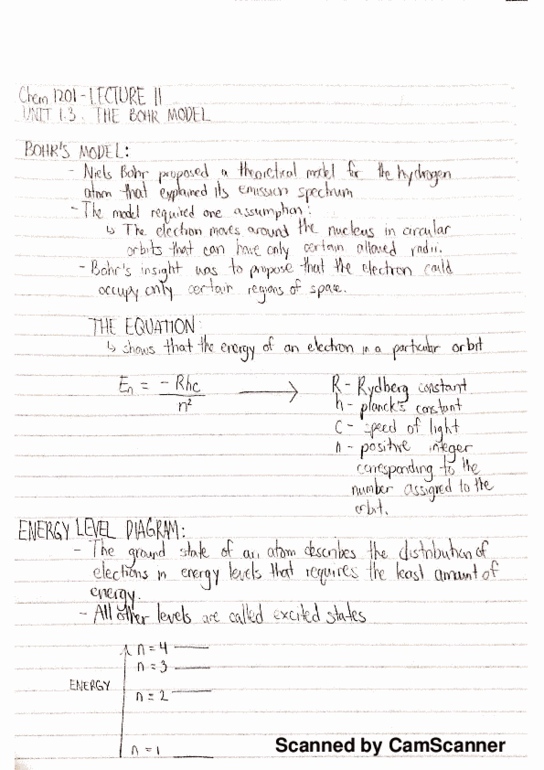 Chem 1201 - LECTURE 11
UNIT 1.3 : THE BOHR MODEL
BOHR'S MODEL:
- Niels Bohr proposed a theoretical model for the hydrogen
atom that explained its emission spectrum
- The model required one assumption:
↳ The electron moves around the nucleus in circular
orbits that can have only certain allowed radii.
- Bohr's insight was to propose that the electron could
occupy only certain regions of space.
THE EQUATION:
↳ shows that the energy of an electron in a particular orbit
Eₙ = -Rhc / n² ⟶ R - Rydberg constant
h - planck's constant
C - speed of light
n - positive integer
corresponding to the
number assigned to the
orbit.
ENERGY LEVEL DIAGRAM:
- The ground state of an atom describes the distribution of
electrons in energy levels that requires the least amount of
energy.
- All other levels are called excited states
n = 4
n = 3
ENERGY
n = 2
n = 1
Scanned by CamScanner